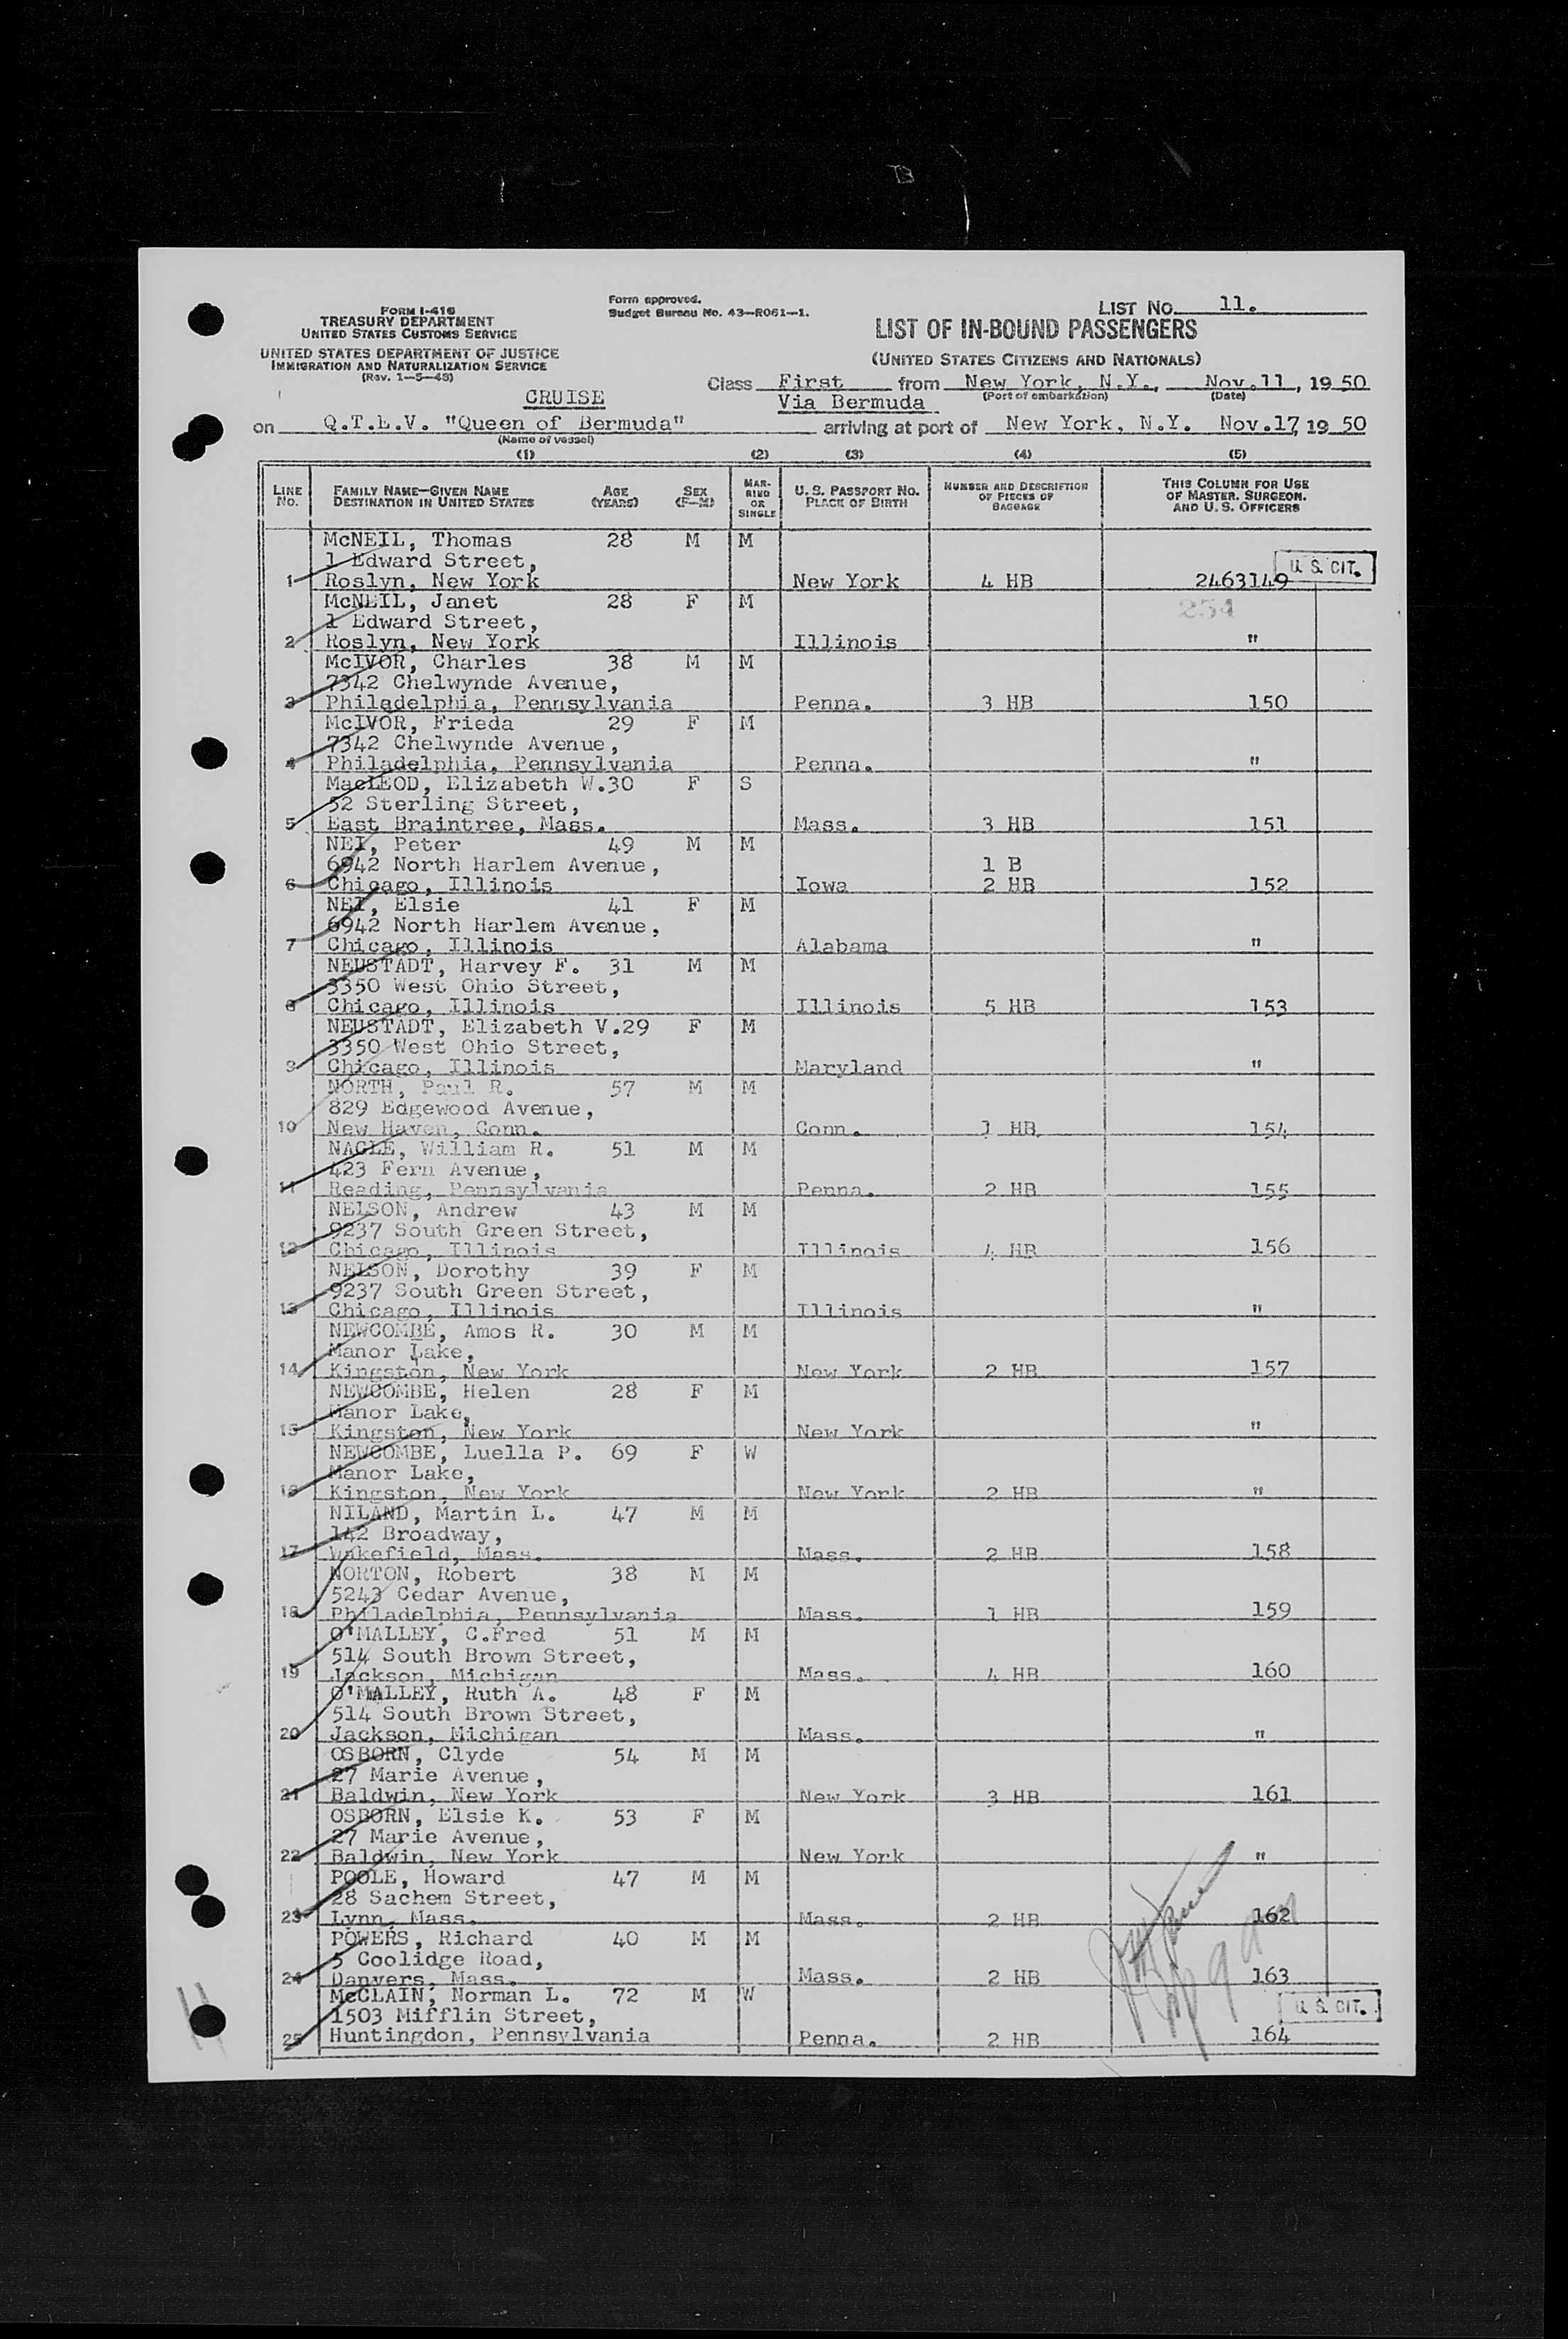 LIST NO. 11.
FORM I-416
TREASURY DEPARTMENT
UNITED STATES CUSTOMS SERVICE
UNITED STATES DEPARTMENT OF JUSTICE
IMMIGRATION AND NATURALIZATION SERVICE
(Rev. 1-5-48)
Form approved.
Budget Bureau No. 43-R061-1.
LIST OF IN-BOUND PASSENGERS
(UNITED STATES CITIZENS AND NATIONALS)
Class First from New York, N.Y., Nov.11, 1950
CRUISE Via Bermuda (Port of embarkation) (Date)
on Q.T.E.V. "Queen of Bermuda" arriving at port of New York, N.Y. Nov.17, 1950
(Name of vessel)
(1) (2) (3) (4) (5)
LINE NO. FAMILY NAME—GIVEN NAME DESTINATION IN UNITED STATES AGE (YEARS) SEX (F—M) MARRIED OR SINGLE U. S. PASSPORT NO. PLACE OF BIRTH NUMBER AND DESCRIPTION OF PIECES OF BAGGAGE THIS COLUMN FOR USE OF MASTER, SURGEON, AND U. S. OFFICERS
McNEIL, Thomas 28 M M
1 Edward Street, U. S. CIT.
1 Roslyn, New York New York 4 HB 2463149
McNEIL, Janet 28 F M 254
1 Edward Street,
2 Roslyn, New York Illinois "
McIVOR, Charles 38 M M
7342 Chelwynde Avenue,
3 Philadelphia, Pennsylvania Penna. 3 HB 150
McIVOR, Frieda 29 F M
7342 Chelwynde Avenue,
4 Philadelphia, Pennsylvania Penna. "
MacLEOD, Elizabeth W. 30 F S
52 Sterling Street,
5 East Braintree, Mass. Mass. 3 HB 151
NEI, Peter 49 M M
6942 North Harlem Avenue, 1 B
6 Chicago, Illinois Iowa 2 HB 152
NEI, Elsie 41 F M
6942 North Harlem Avenue,
7 Chicago, Illinois Alabama "
NEUSTADT, Harvey F. 31 M M
3350 West Ohio Street,
8 Chicago, Illinois Illinois 5 HB 153
NEUSTADT, Elizabeth V. 29 F M
3350 West Ohio Street,
9 Chicago, Illinois Maryland "
NORTH, Paul R. 57 M M
829 Edgewood Avenue,
10 New Haven, Conn. Conn. 1 HB 154
NAGLE, William R. 51 M M
423 Fern Avenue,
11 Reading, Pennsylvania Penna. 2 HB 155
NELSON, Andrew 43 M M
9237 South Green Street,
12 Chicago, Illinois Illinois 4 HB 156
NELSON, Dorothy 39 F M
9237 South Green Street,
13 Chicago, Illinois Illinois "
NEWCOMBE, Amos R. 30 M M
Manor Lake,
14 Kingston, New York New York 2 HB 157
NEWCOMBE, Helen 28 F M
Manor Lake,
15 Kingston, New York New York "
NEWCOMBE, Luella P. 69 F W
Manor Lake,
16 Kingston, New York New York 2 HB "
NILAND, Martin L. 47 M M
142 Broadway,
17 Wakefield, Mass. Mass. 2 HB 158
NORTON, Robert 38 M M
5243 Cedar Avenue,
18 Philadelphia, Pennsylvania Mass. 1 HB 159
O'MALLEY, C.Fred 51 M M
514 South Brown Street,
19 Jackson, Michigan Mass. 4 HB 160
O'MALLEY, Ruth A. 48 F M
514 South Brown Street,
20 Jackson, Michigan Mass. "
OSBORN, Clyde 54 M M
27 Marie Avenue,
21 Baldwin, New York New York 3 HB 161
OSBORN, Elsie K. 53 F M
27 Marie Avenue,
22 Baldwin, New York New York "
POOLE, Howard 47 M M
28 Sachem Street,
23 Lynn, Mass. Mass. 2 HB 162
POWERS, Richard 40 M M
5 Coolidge Road,
24 Danvers, Mass. Mass. 2 HB 163
McCLAIN, Norman L. 72 M W
1503 Mifflin Street, U. S. CIT.
25 Huntingdon, Pennsylvania Penna. 2 HB 164